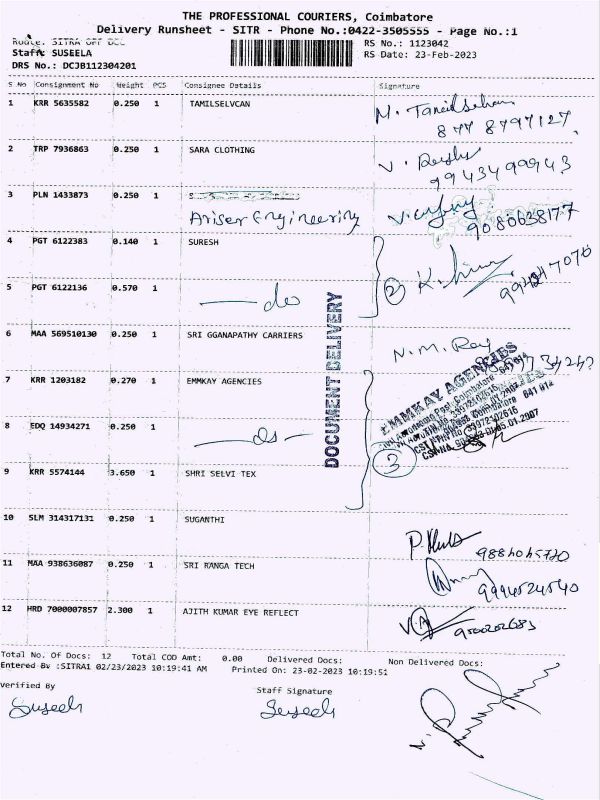 THE PROFESSIONAL COURIERS, Coimbatore
Delivery Runsheet - SITR - Phone No.:0422-3505555 - Page No.:1
Route: SITRA OFF DCC
RS No.: 1123042
Staff: SUSEELA
RS Date: 23-Feb-2023
DRS No.: DCJB112304201
S No Consignment No Weight PCS Consignee Details Signature
1 KRR 5635582 0.250 1 TAMILSELVCAN
877 8797127
2 TRP 7936863 0.250 1 SARA CLOTHING
99434 99943
3 PLN 1433873 0.250 1
Ariser Engineering
9080638177
4 PGT 6122383 0.140 1 SURESH
2
5 PGT 6122136 0.570 1
do
DOCUMENT DELIVERY
6 MAA 569510130 0.250 1 SRI GGANAPATHY CARRIERS
N.M. Raj
7 KRR 1203182 0.270 1 EMMKAY AGENCIES
EMMKAY AGENCIES
8 EDQ 14934271 0.250 1
do
3
9 KRR 5574144 3.650 1 SHRI SELVI TEX
10 SLM 314317131 0.250 1 SUGANTHI
11 MAA 938636087 0.250 1 SRI RANGA TECH
9994524540
12 HRD 7000007857 2.300 1 AJITH KUMAR EYE REFLECT
Total No. Of Docs: 12 Total COD Amt: 0.00 Delivered Docs: Non Delivered Docs:
Entered By :SITRA1 02/23/2023 10:19:41 AM Printed On: 23-02-2023 10:19:51
Verified By
Staff Signature
Suseela
Suseela